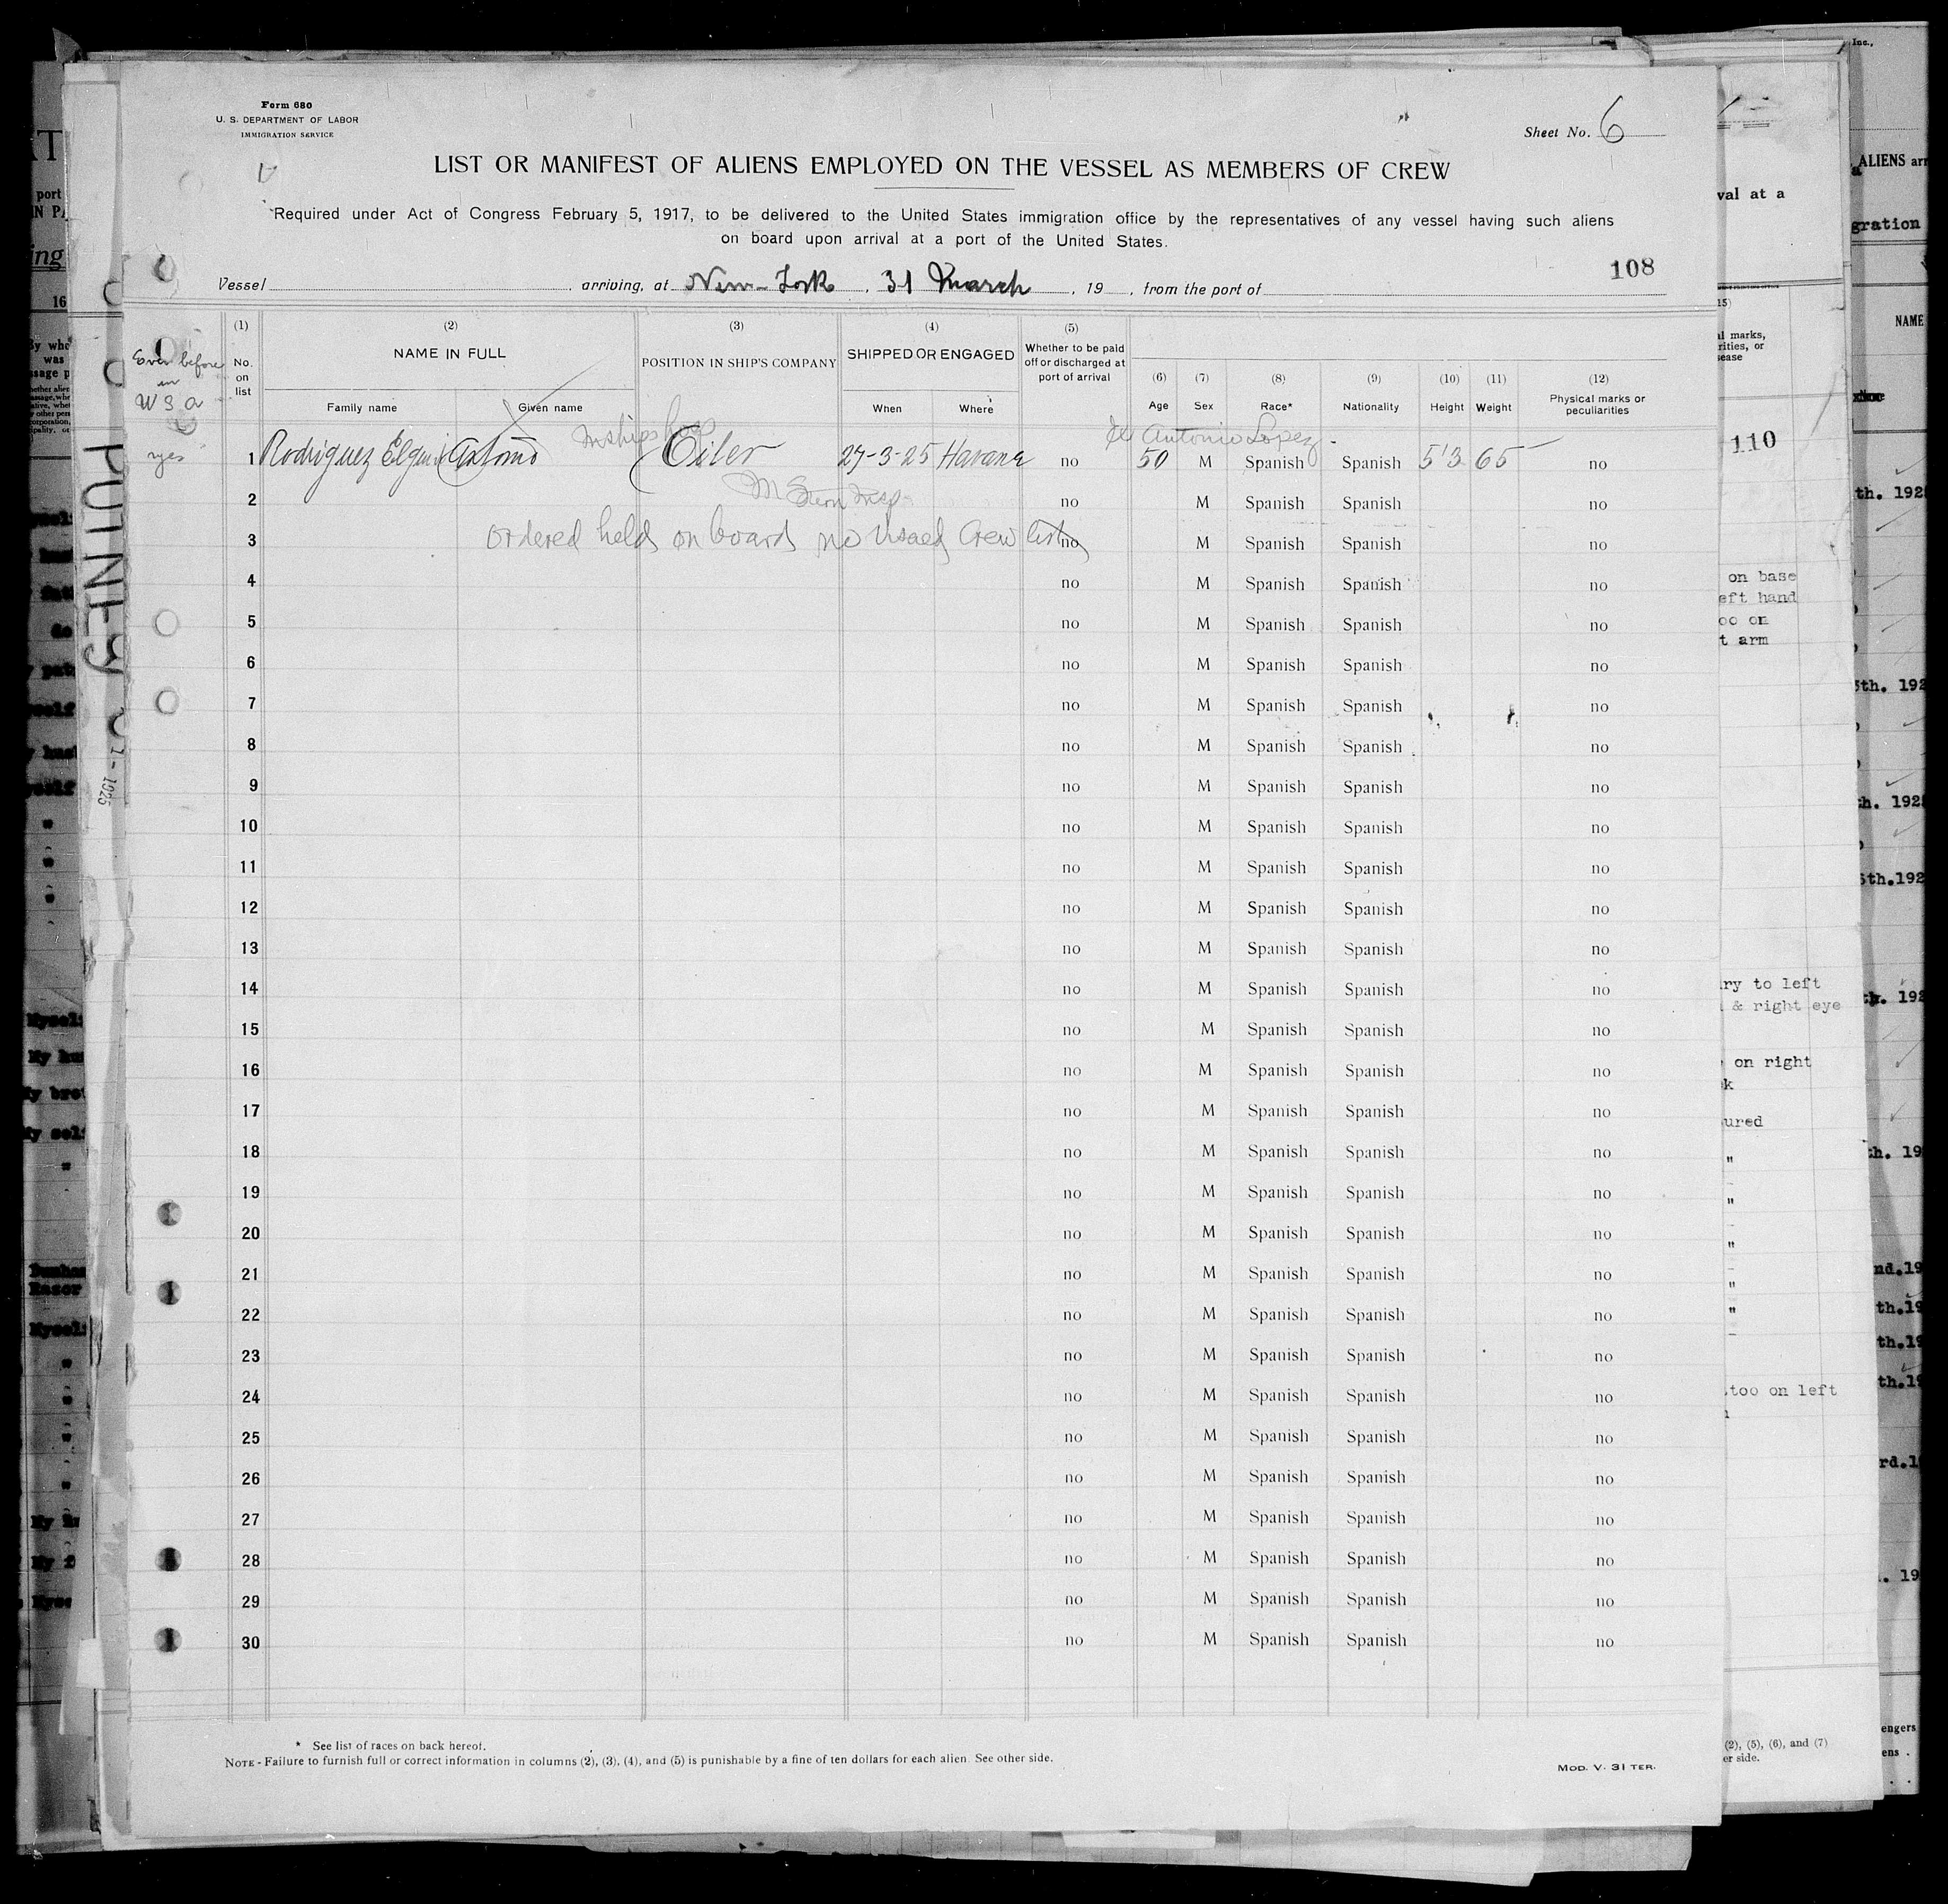 Form 680
U. S. DEPARTMENT OF LABOR
IMMIGRATION SERVICE
Sheet No. 6
LIST OR MANIFEST OF ALIENS EMPLOYED ON THE VESSEL AS MEMBERS OF CREW
Required under Act of Congress February 5, 1917, to be delivered to the United States immigration office by the representatives of any vessel having such aliens
on board upon arrival at a port of the United States.
108
Vessel arriving, at New-York, 31 March, 19 , from the port of
Ever before in W S a
(1) (2) (3) (4) (5)
No. on list NAME IN FULL POSITION IN SHIP'S COMPANY SHIPPED OR ENGAGED Whether to be paid off or discharged at port of arrival
(6) (7) (8) (9) (10) (11) (12)
Family name Given name When Where Age Sex Race* Nationality Height Weight Physical marks or peculiarities
Antonio Lopez
yes 1 Rodriguez Antonio Oiler 27-3-25 Havana no 50 M Spanish Spanish 5'3 65 no
2 no M Spanish Spanish no
ordered held on board no visaed crew list
3 no M Spanish Spanish no
4 no M Spanish Spanish no
5 no M Spanish Spanish no
6 no M Spanish Spanish no
7 no M Spanish Spanish no
8 no M Spanish Spanish no
9 no M Spanish Spanish no
10 no M Spanish Spanish no
11 no M Spanish Spanish no
12 no M Spanish Spanish no
13 no M Spanish Spanish no
14 no M Spanish Spanish no
15 no M Spanish Spanish no
16 no M Spanish Spanish no
17 no M Spanish Spanish no
18 no M Spanish Spanish no
19 no M Spanish Spanish no
20 no M Spanish Spanish no
21 no M Spanish Spanish no
22 no M Spanish Spanish no
23 no M Spanish Spanish no
24 no M Spanish Spanish no
25 no M Spanish Spanish no
26 no M Spanish Spanish no
27 no M Spanish Spanish no
28 no M Spanish Spanish no
29 no M Spanish Spanish no
30 no M Spanish Spanish no
* See list of races on back hereof.
NOTE - Failure to furnish full or correct information in columns (2), (3), (4), and (5) is punishable by a fine of ten dollars for each alien. See other side.
MOD. V. 31 TER.
PUTNEY
1925
110
on base
hand
on
arm
to left
& right eye
on right
on left
(2), (5), (6), and (7)
side.
NAME